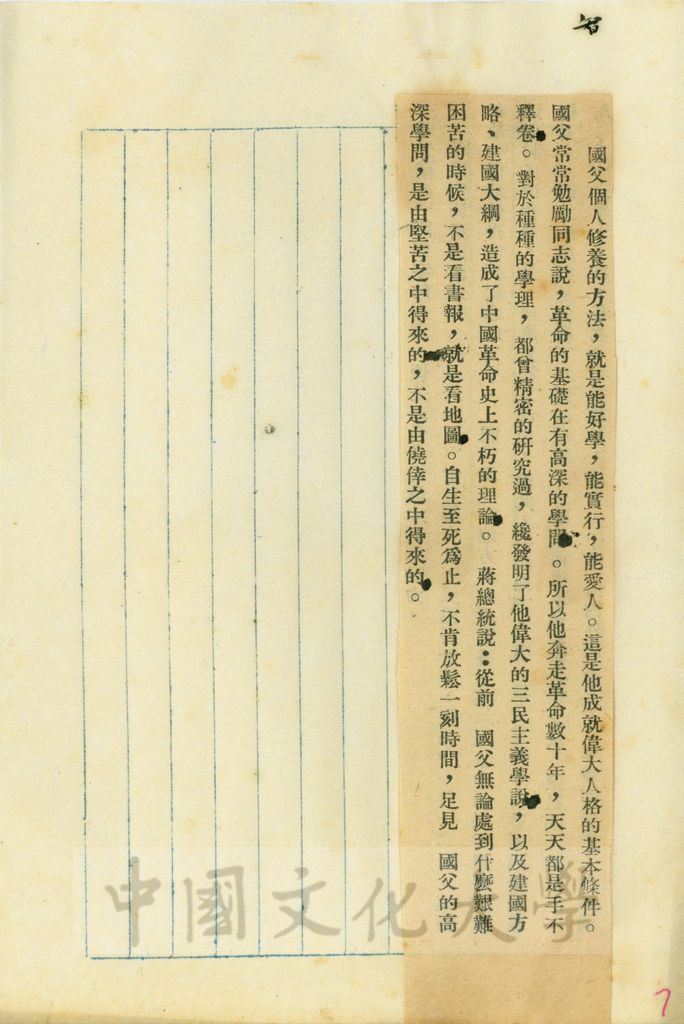 智
國父個人修養的方法，就是能好學，能實行，能愛人。這是他成就偉大人格的基本條件。
國父常常勉勵同志說，革命的基礎在有高深的學問。所以他奔走革命數十年，天天都是手不
釋卷。對於種種的學理，都曾精密的研究過，纔發明了他偉大的三民主義學說，以及建國方
略、建國大綱，造成了中國革命史上不朽的理論。　蔣總統說：從前　國父無論處到什麼艱難
困苦的時候，不是看書報，就是看地圖。自生至死為止，不肯放鬆一刻時間，足見　國父的高
深學問，是由堅苦之中得來的，不是由僥倖之中得來的。
中國文化大學
7